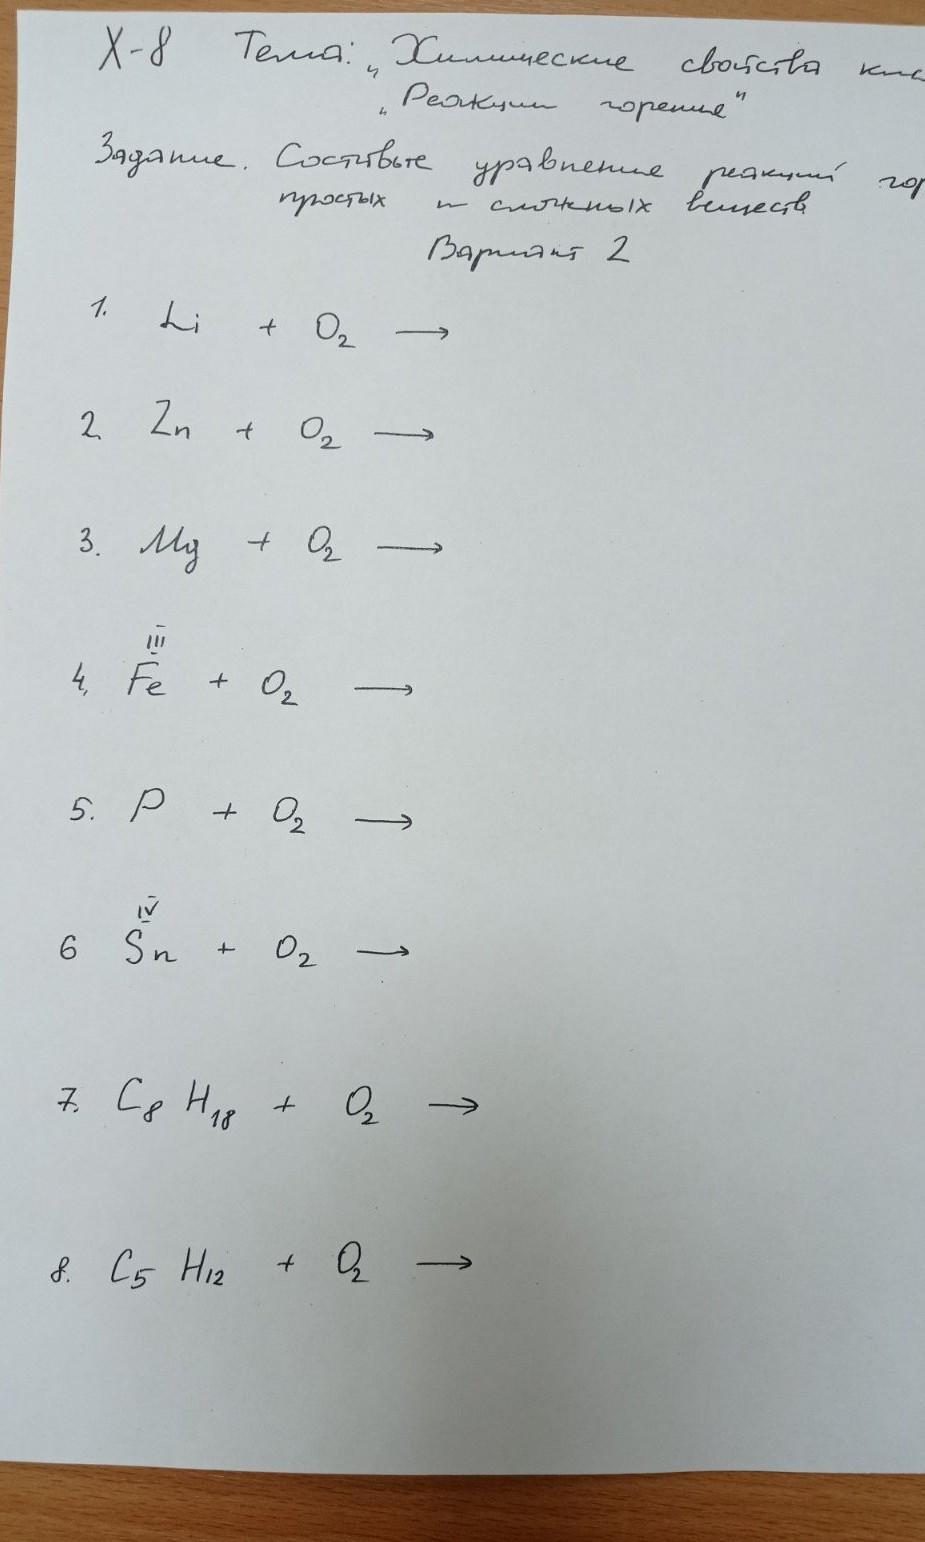 X-8 Тема: „Химические свойства кис
„Реакции горения"
Задание. Составьте уравнение реакций гор
простых и сложных веществ
Вариант 2
1. Li + O₂ →
2. Zn + O₂ →
3. Mg + O₂ →
III
4. Fe + O₂ →
5. P + O₂ →
IV
6 Sn + O₂ →
7. C₈H₁₈ + O₂ →
8. C₅H₁₂ + O₂ →